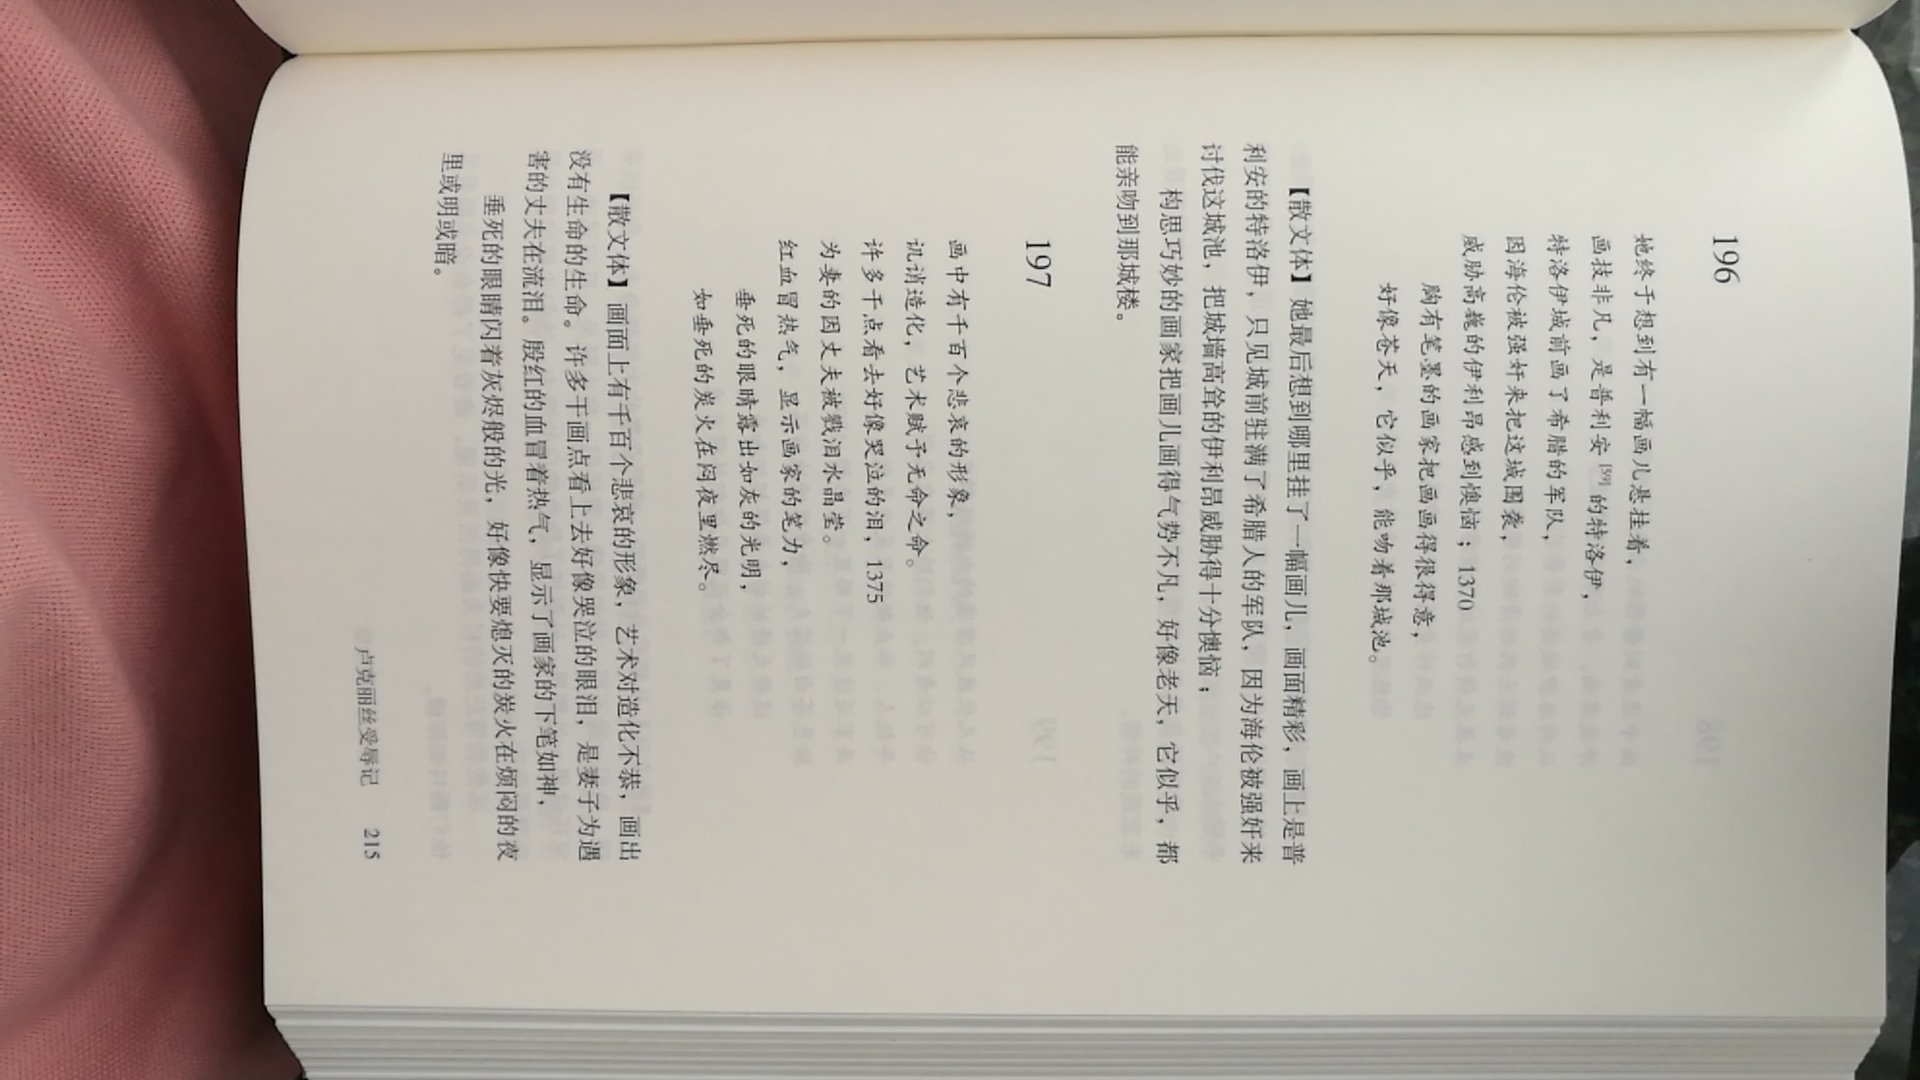 196
她终于想到有一幅画儿悬挂着，
画技非凡，是普利安[59]的特洛伊，
特洛伊城前画了希腊的军队，
因海伦被强奸来把这城围袭，
威胁高巍的伊利昂感到懊恼；1370
胸有笔墨的画家把画画得很得意，
好像苍天，它似乎，能吻着那城池。
【散文体】她最后想到哪里挂了一幅画儿，画面精彩，画上是普
利安的特洛伊，只见城前驻满了希腊人的军队，因为海伦被强奸来
讨伐这城池，把城墙高耸的伊利昂威胁得十分懊恼；
构思巧妙的画家把画儿画得气势不凡，好像老天，它似乎，都
能亲吻到那城楼。
197
画中有千百个悲哀的形象，
讥诮造化，艺术赋予无命之命。
许多干点看去好像哭泣的泪，1375
为妻的因丈夫被戮泪水晶莹。
红血冒热气，显示画家的笔力，
垂死的眼睛露出如灰的光明，
如垂死的炭火在闷夜里燃尽。
【散文体】画面上有千百个悲哀的形象，艺术对造化不恭，画出
没有生命的生命。许多干画点看上去好像哭泣的眼泪，是妻子为遇
害的丈夫在流泪。殷红的血冒着热气，显示了画家的下笔如神，
垂死的眼睛闪着灰烬般的光，好像快要熄灭的炭火在烦闷的夜
里或明或暗。
卢克丽丝受辱记 215